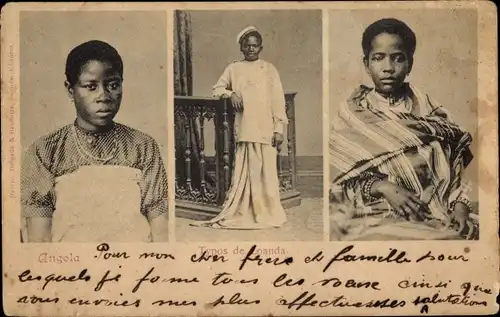 Angola
Typos de Loanda
Pour mon cher frère et famille pour
lesquels je forme tous les vœux ainsi que
vous envoies mes plus affectueuses salutations